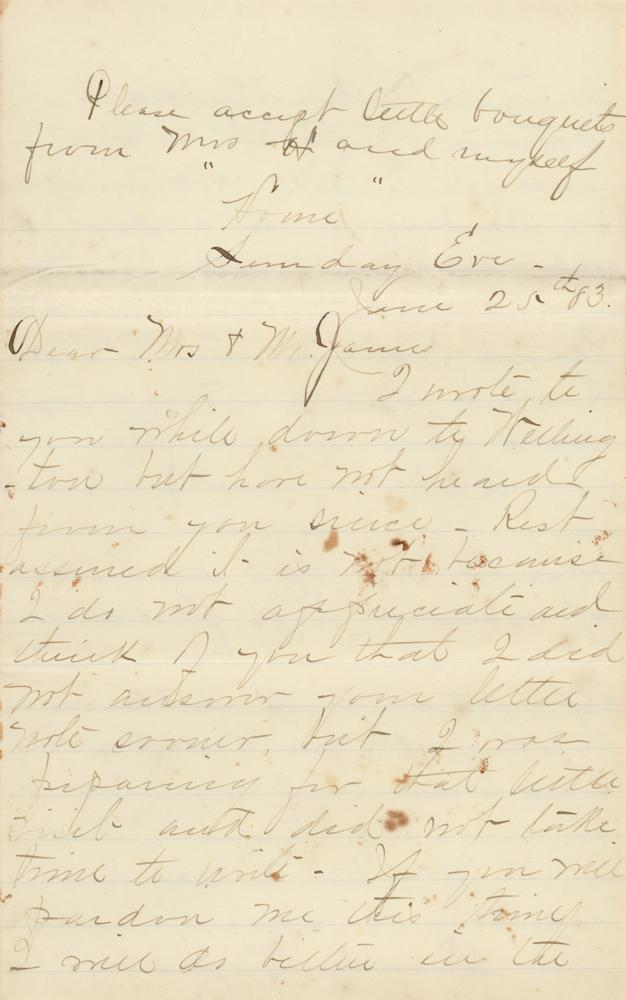 Please accept little bouquets
from Mrs H and myself
" "
Home
Sunday Eve -
June 25th 83.
Dear Mrs & Mr. James
I wrote to
you while down to Welling
-ton but have not heard
from you since - Rest
assured it is not because
I do not appreciate and
think of you that I did
not answer your little
note sooner, but I was
preparing for that little
visit and did not take
time to write - If you will
pardon me this time
I will do better in the